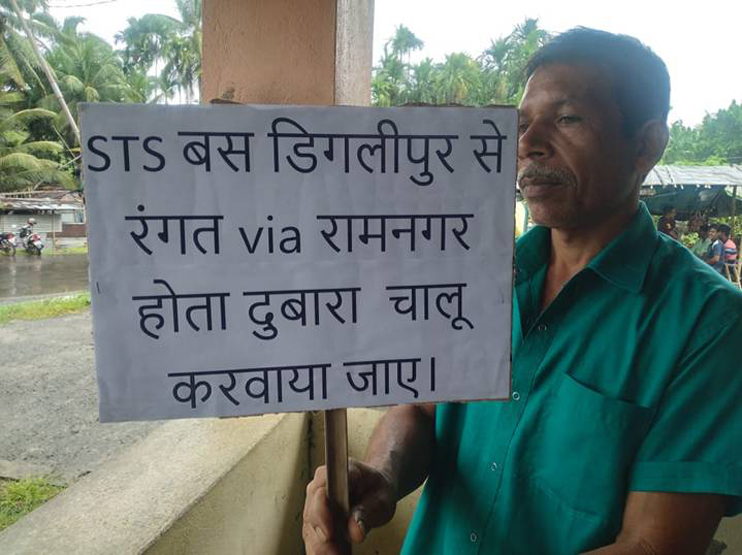 STS बस डिगलीपुर से
रंगत via रामनगर
होता दुबारा चालू
करवाया जाए।